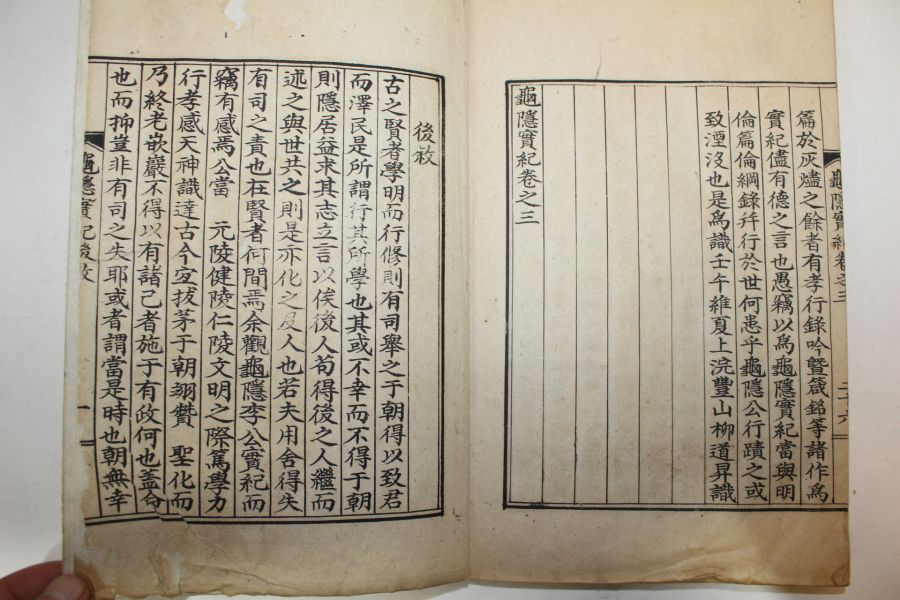 篇於灰燼之餘者有孝行錄吟曁箴銘等諸作爲
實紀儘有德之言也愚竊以爲龜隱實紀當與明
倫篇倫綱錄幷行於世何患乎龜隱公行蹟之或
致湮沒也是爲識壬午維夏上浣豐山柳道昇識
龜隱實紀卷之三
龜隱實紀卷之三
二十六
後敘
古之賢者學明而行修則有司舉之于朝得以致君
而澤民是所謂行其所學也其或不幸而不得于朝
則隱居益求其志立言以俟後人苟得後之人繼而
述之與世共之則是亦化之及人也若夫用舍得失
有司之責也在賢者何間焉余觀龜隱李公實紀而
竊有感焉公當 元陵健陵仁陵文明之際篤學力
行孝感天神識達古今宜拔茅于朝翊贊 聖化而
乃終老嵌巖不得以有諸己者施于有政何也盖命
也而抑豈非有司之失耶或者謂當是時也朝無幸
龜隱實紀後敘
一